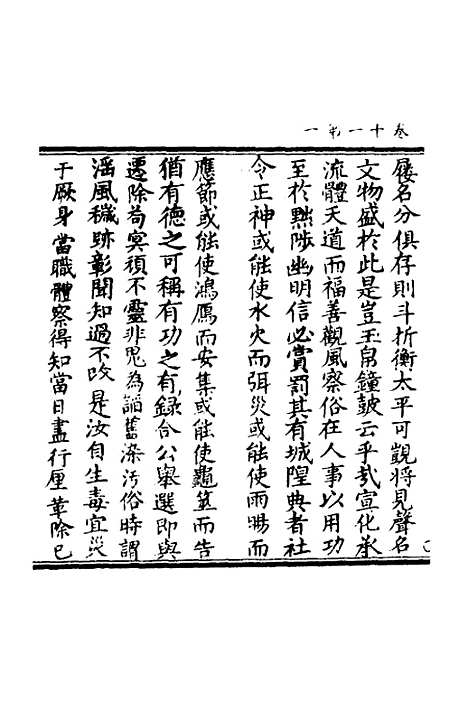 卷十一第一
屨名分俱存則斗折衡太平可觀將見聲名
文物盛於此是豈玉帛鐘皷云乎㢤宣化承
流體天道而福善觀風察俗在人事以用功
至於黜陟幽明信必賞罰其有城隍典者社
令正神或能使水火而弭災或能使雨暘而
應節或能使鴻鴈而安集或能使龜筮而告
猶有德之可稱有功之有錄合公舉選即與
遷除苟冥頑不靈非鬼為謟舊染汚俗時謂
滛風穢跡彰聞知過不改是汝自生毒宜災
于厥身當職體察得知當日盡行厘革除已